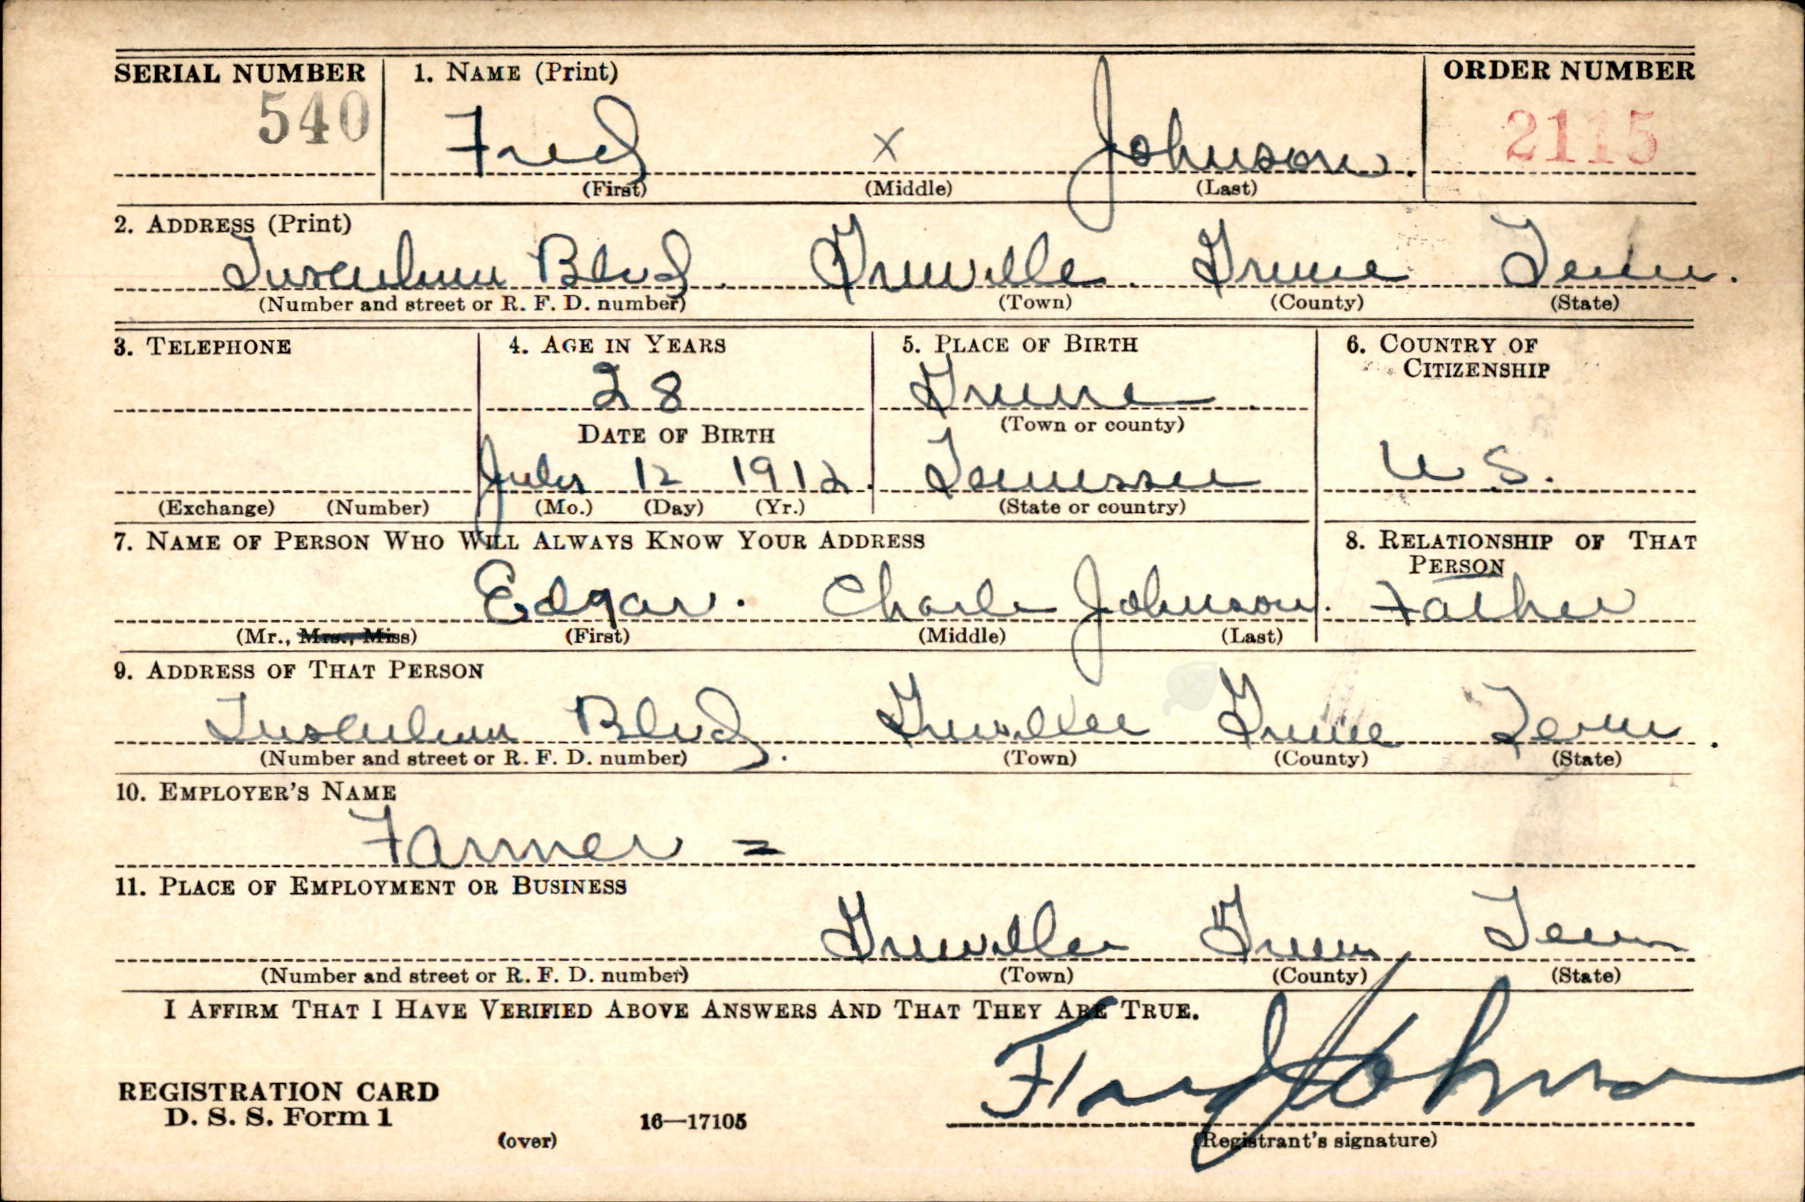 SERIAL NUMBER 1. NAME (Print) ORDER NUMBER
540 Fred X Johnson. 2115
(First) (Middle) (Last)
2. ADDRESS (Print)
Tusculum Blvd. Greenville. Greene Tenn.
(Number and street or R. F. D. number) (Town) (County) (State)
3. TELEPHONE 4. AGE IN YEARS 5. PLACE OF BIRTH 6. COUNTRY OF CITIZENSHIP
28 Greene
DATE OF BIRTH (Town or county)
July 12 1912. Tennessee U S.
(Exchange) (Number) (Mo.) (Day) (Yr.) (State or country)
7. NAME OF PERSON WHO WILL ALWAYS KNOW YOUR ADDRESS 8. RELATIONSHIP OF THAT PERSON
Edgar. Charle Johnson. Father
(Mr., Mrs., Miss) (First) (Middle) (Last)
9. ADDRESS OF THAT PERSON
Tusculum Blvd. Greenville Greene Tenn.
(Number and street or R. F. D. number) (Town) (County) (State)
10. EMPLOYER'S NAME
Farmer =
11. PLACE OF EMPLOYMENT OR BUSINESS
Greenville Greene Tenn
(Number and street or R. F. D. number) (Town) (County) (State)
I AFFIRM THAT I HAVE VERIFIED ABOVE ANSWERS AND THAT THEY ARE TRUE.
Fred Johnson
REGISTRATION CARD
D. S. S. Form 1 16—17105
(over) (Registrant's signature)